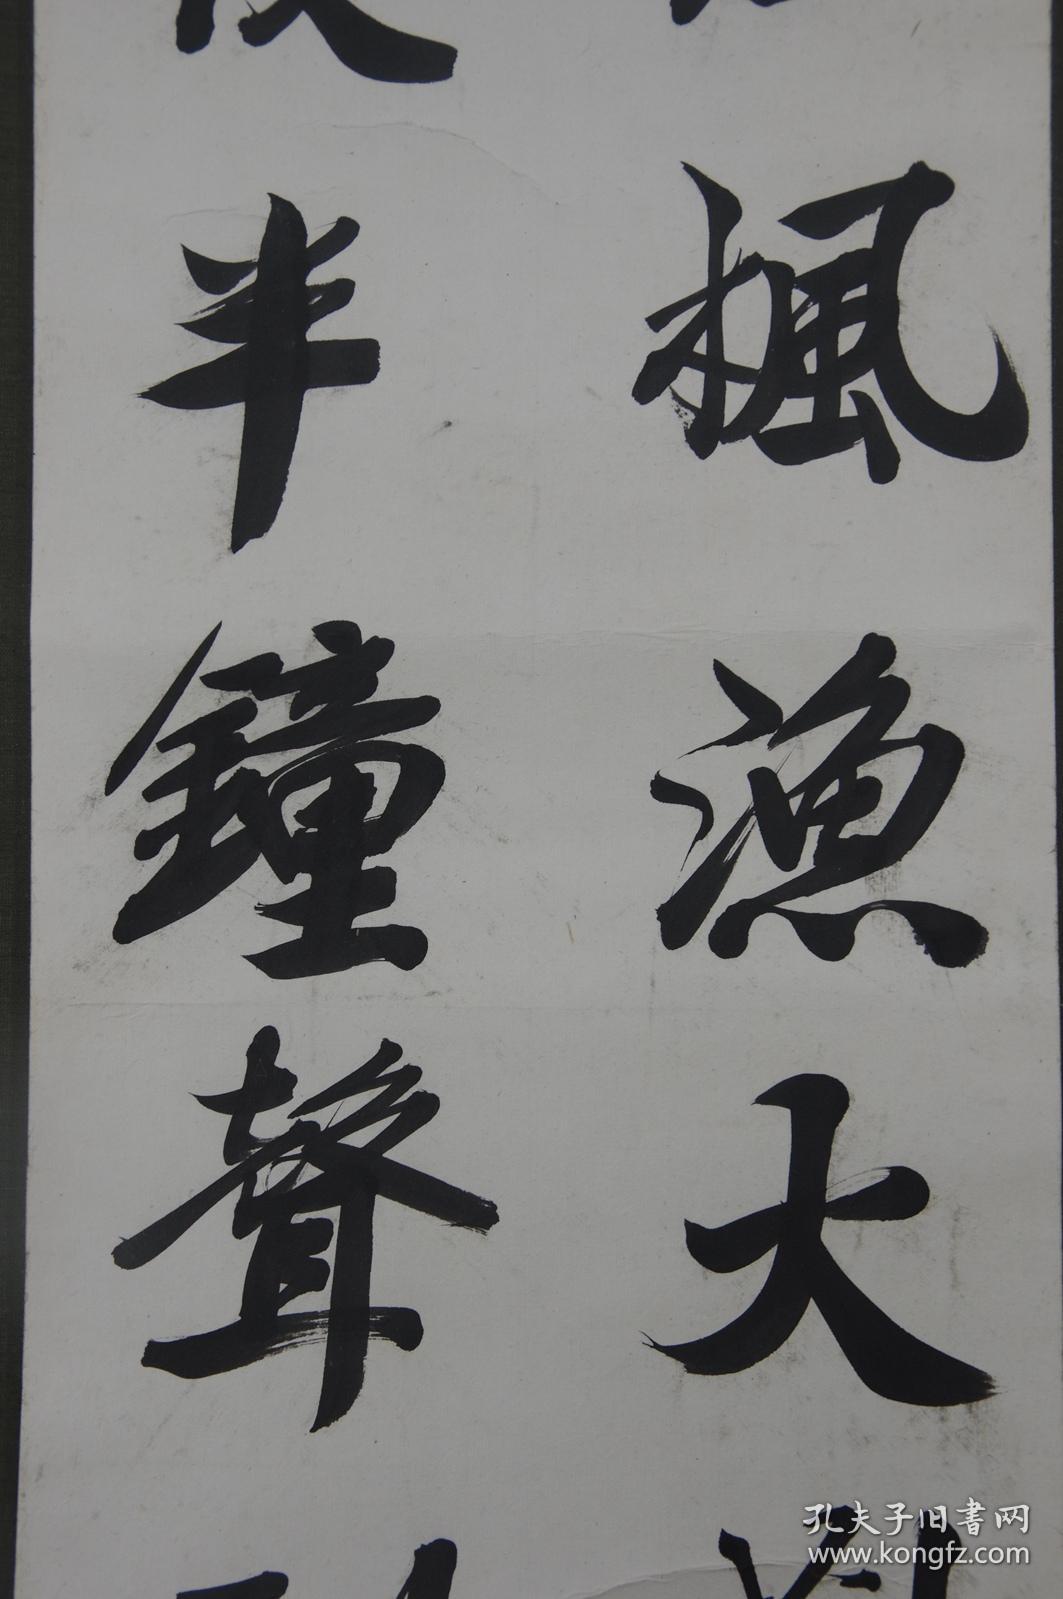 楓漁大
半鐘聲
孔夫子旧書网
www.kongfz.com